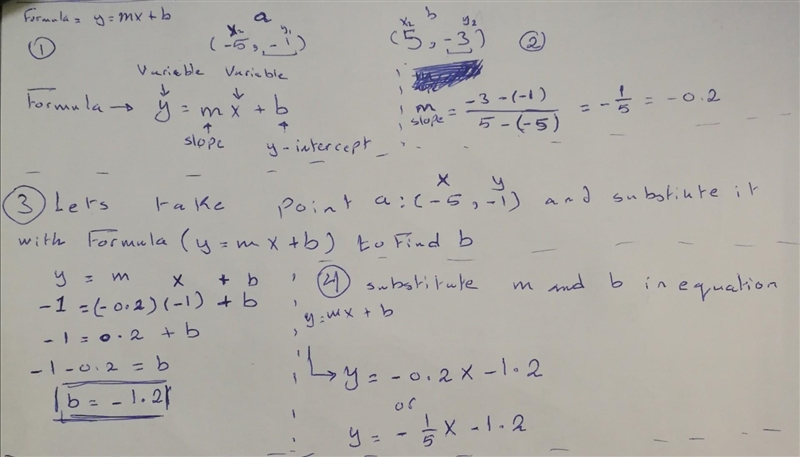 Formula = y = mx + b
a
x₂ y₁
(-5, -1)
b
x₂ y₂
(5, -3)
①
②
Variable Variable
Formula → y = mx + b
slope
y-intercept
m = -3-(-1) / 5-(-5) = -1/5 = -0.2
slope
③ Lets take Point a: (-5, -1) and substitute it
x y
with Formula (y = mx + b) to Find b
y = m x + b
-1 = (-0.2)(-1) + b
-1 = 0.2 + b
-1 - 0.2 = b
b = -1.2
④ substitute m and b in equation
y = mx + b
y = -0.2x - 1.2
or
y = -1/5x - 1.2